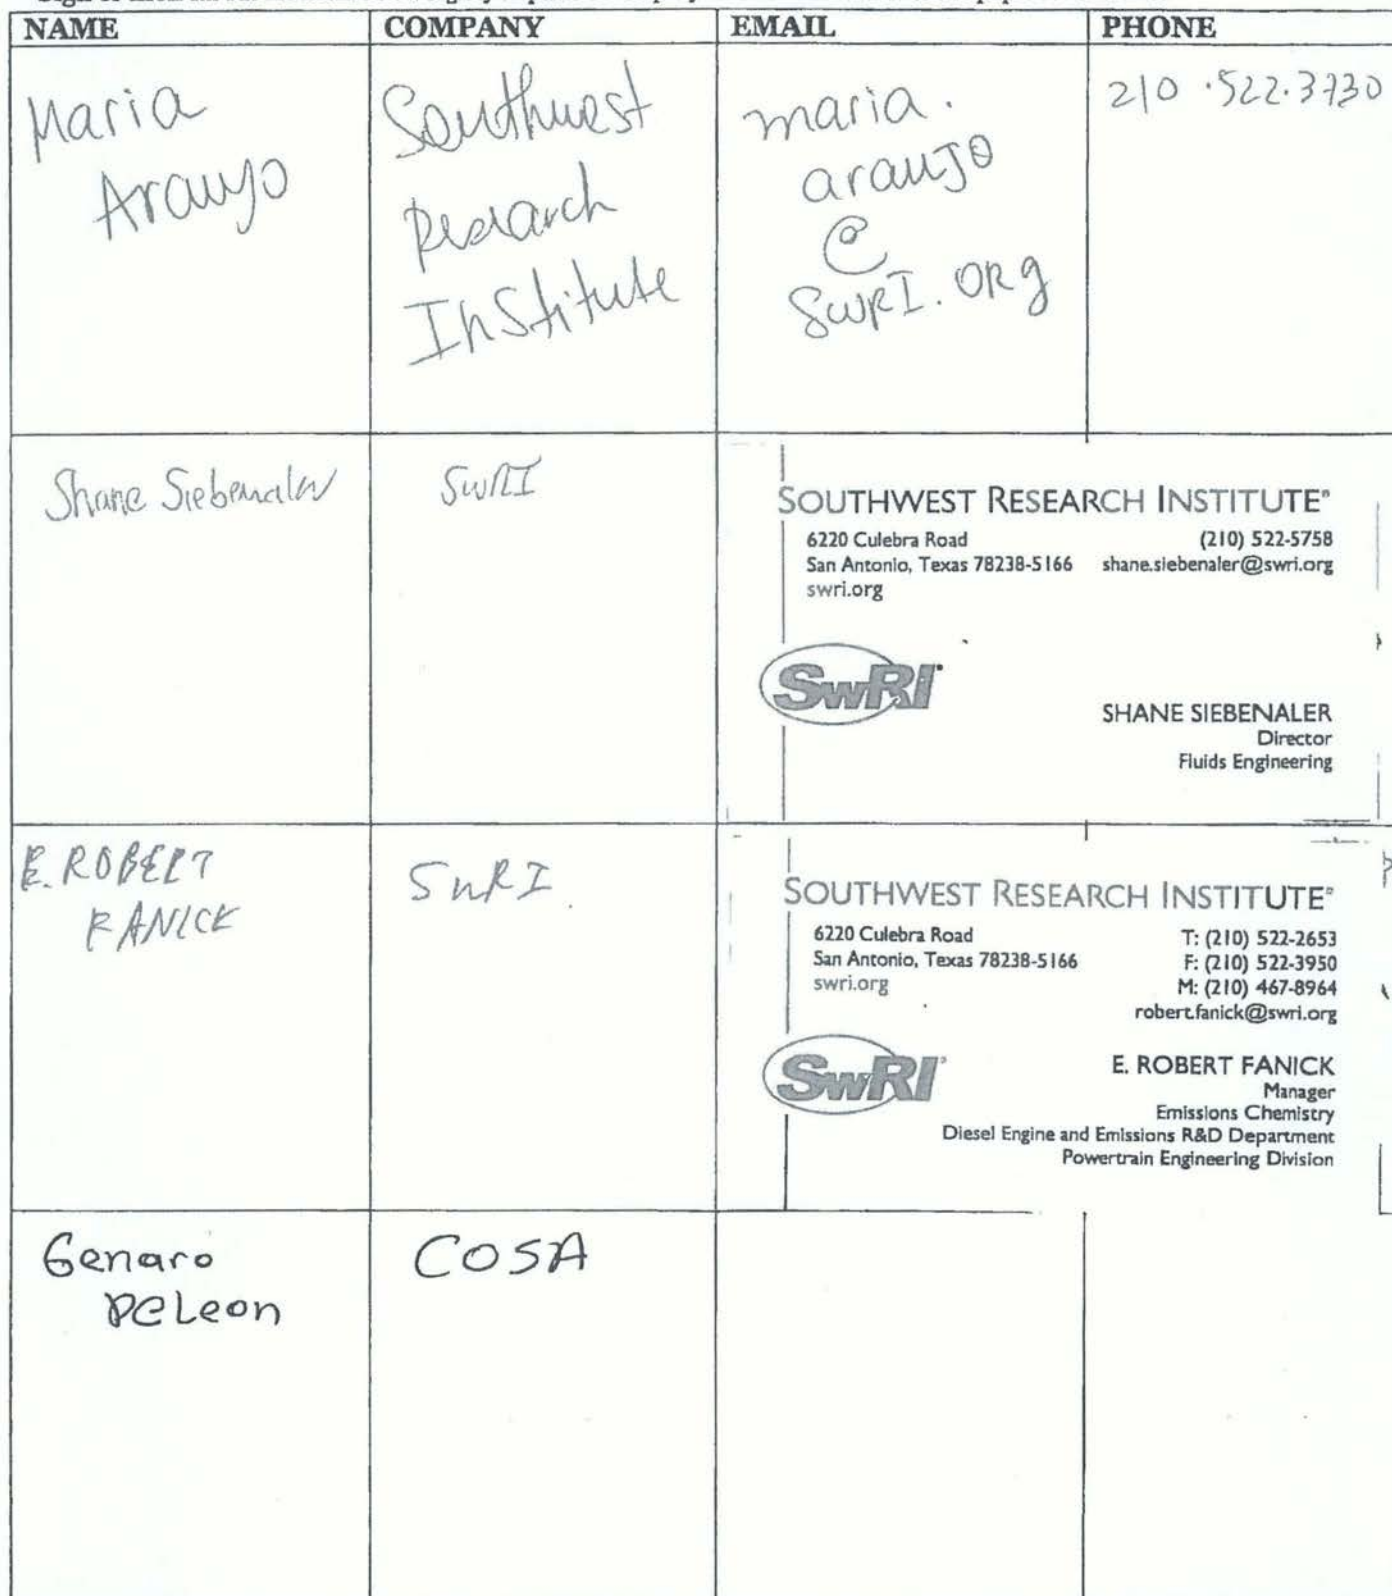 NAME COMPANY EMAIL PHONE
Maria
Araujo
Southwest
Research
Institute
maria.
araujo
@
SwRI.ORg
210.522.3730
Shane Siebenaler
SwRI
SOUTHWEST RESEARCH INSTITUTE®
6220 Culebra Road
San Antonio, Texas 78238-5166
swri.org
(210) 522-5758
shane.siebenaler@swri.org
SwRI
SHANE SIEBENALER
Director
Fluids Engineering
E. ROBERT
FANICK
SwRI
SOUTHWEST RESEARCH INSTITUTE®
6220 Culebra Road
San Antonio, Texas 78238-5166
swri.org
T: (210) 522-2653
F: (210) 522-3950
M: (210) 467-8964
robert.fanick@swri.org
SwRI
E. ROBERT FANICK
Manager
Emissions Chemistry
Diesel Engine and Emissions R&D Department
Powertrain Engineering Division
Genaro
DeLeon
COSA